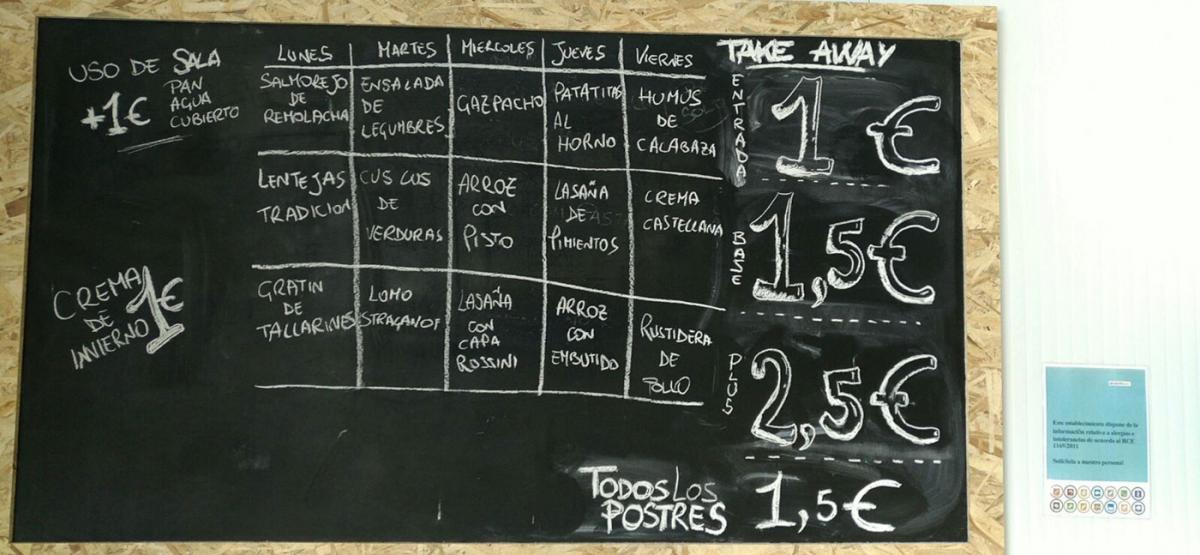 USO DE SALA
+1€
PAN
AGUA
CUBIERTO
CREMA
DE
INVIERNO
1€
LUNES
MARTES
MIERCOLES
JUEVES
VIERNES
SALMOREJO
DE
REMOLACHA
ENSALADA
DE
LEGUMBRES
GAZPACHO
PATATITAS
AL
HORNO
HUMUS
DE
CALABAZA
LENTEJAS
TRADICION
CUS CUS
DE
VERDURAS
ARROZ
CON
PISTO
LASAÑA
DE
PIMIENTOS
CREMA
CASTELLANA
GRATIN
DE
TALLARINES
LOMO
STRAGANOF
LASAÑA
CON
CAPA
ROSSINI
ARROZ
CON
EMBUTIDO
RUSTIDERA
DE
POLLO
TAKE AWAY
ENTRADA
1 €
BASE
1,5€
PLUS
2,5€
TODOS LOS
POSTRES
1,5€
Este establecimiento dispone de la
información relativa a alergias e
intolerancias de acuerdo al RCE
1169/2011
Solicítela a nuestro personal